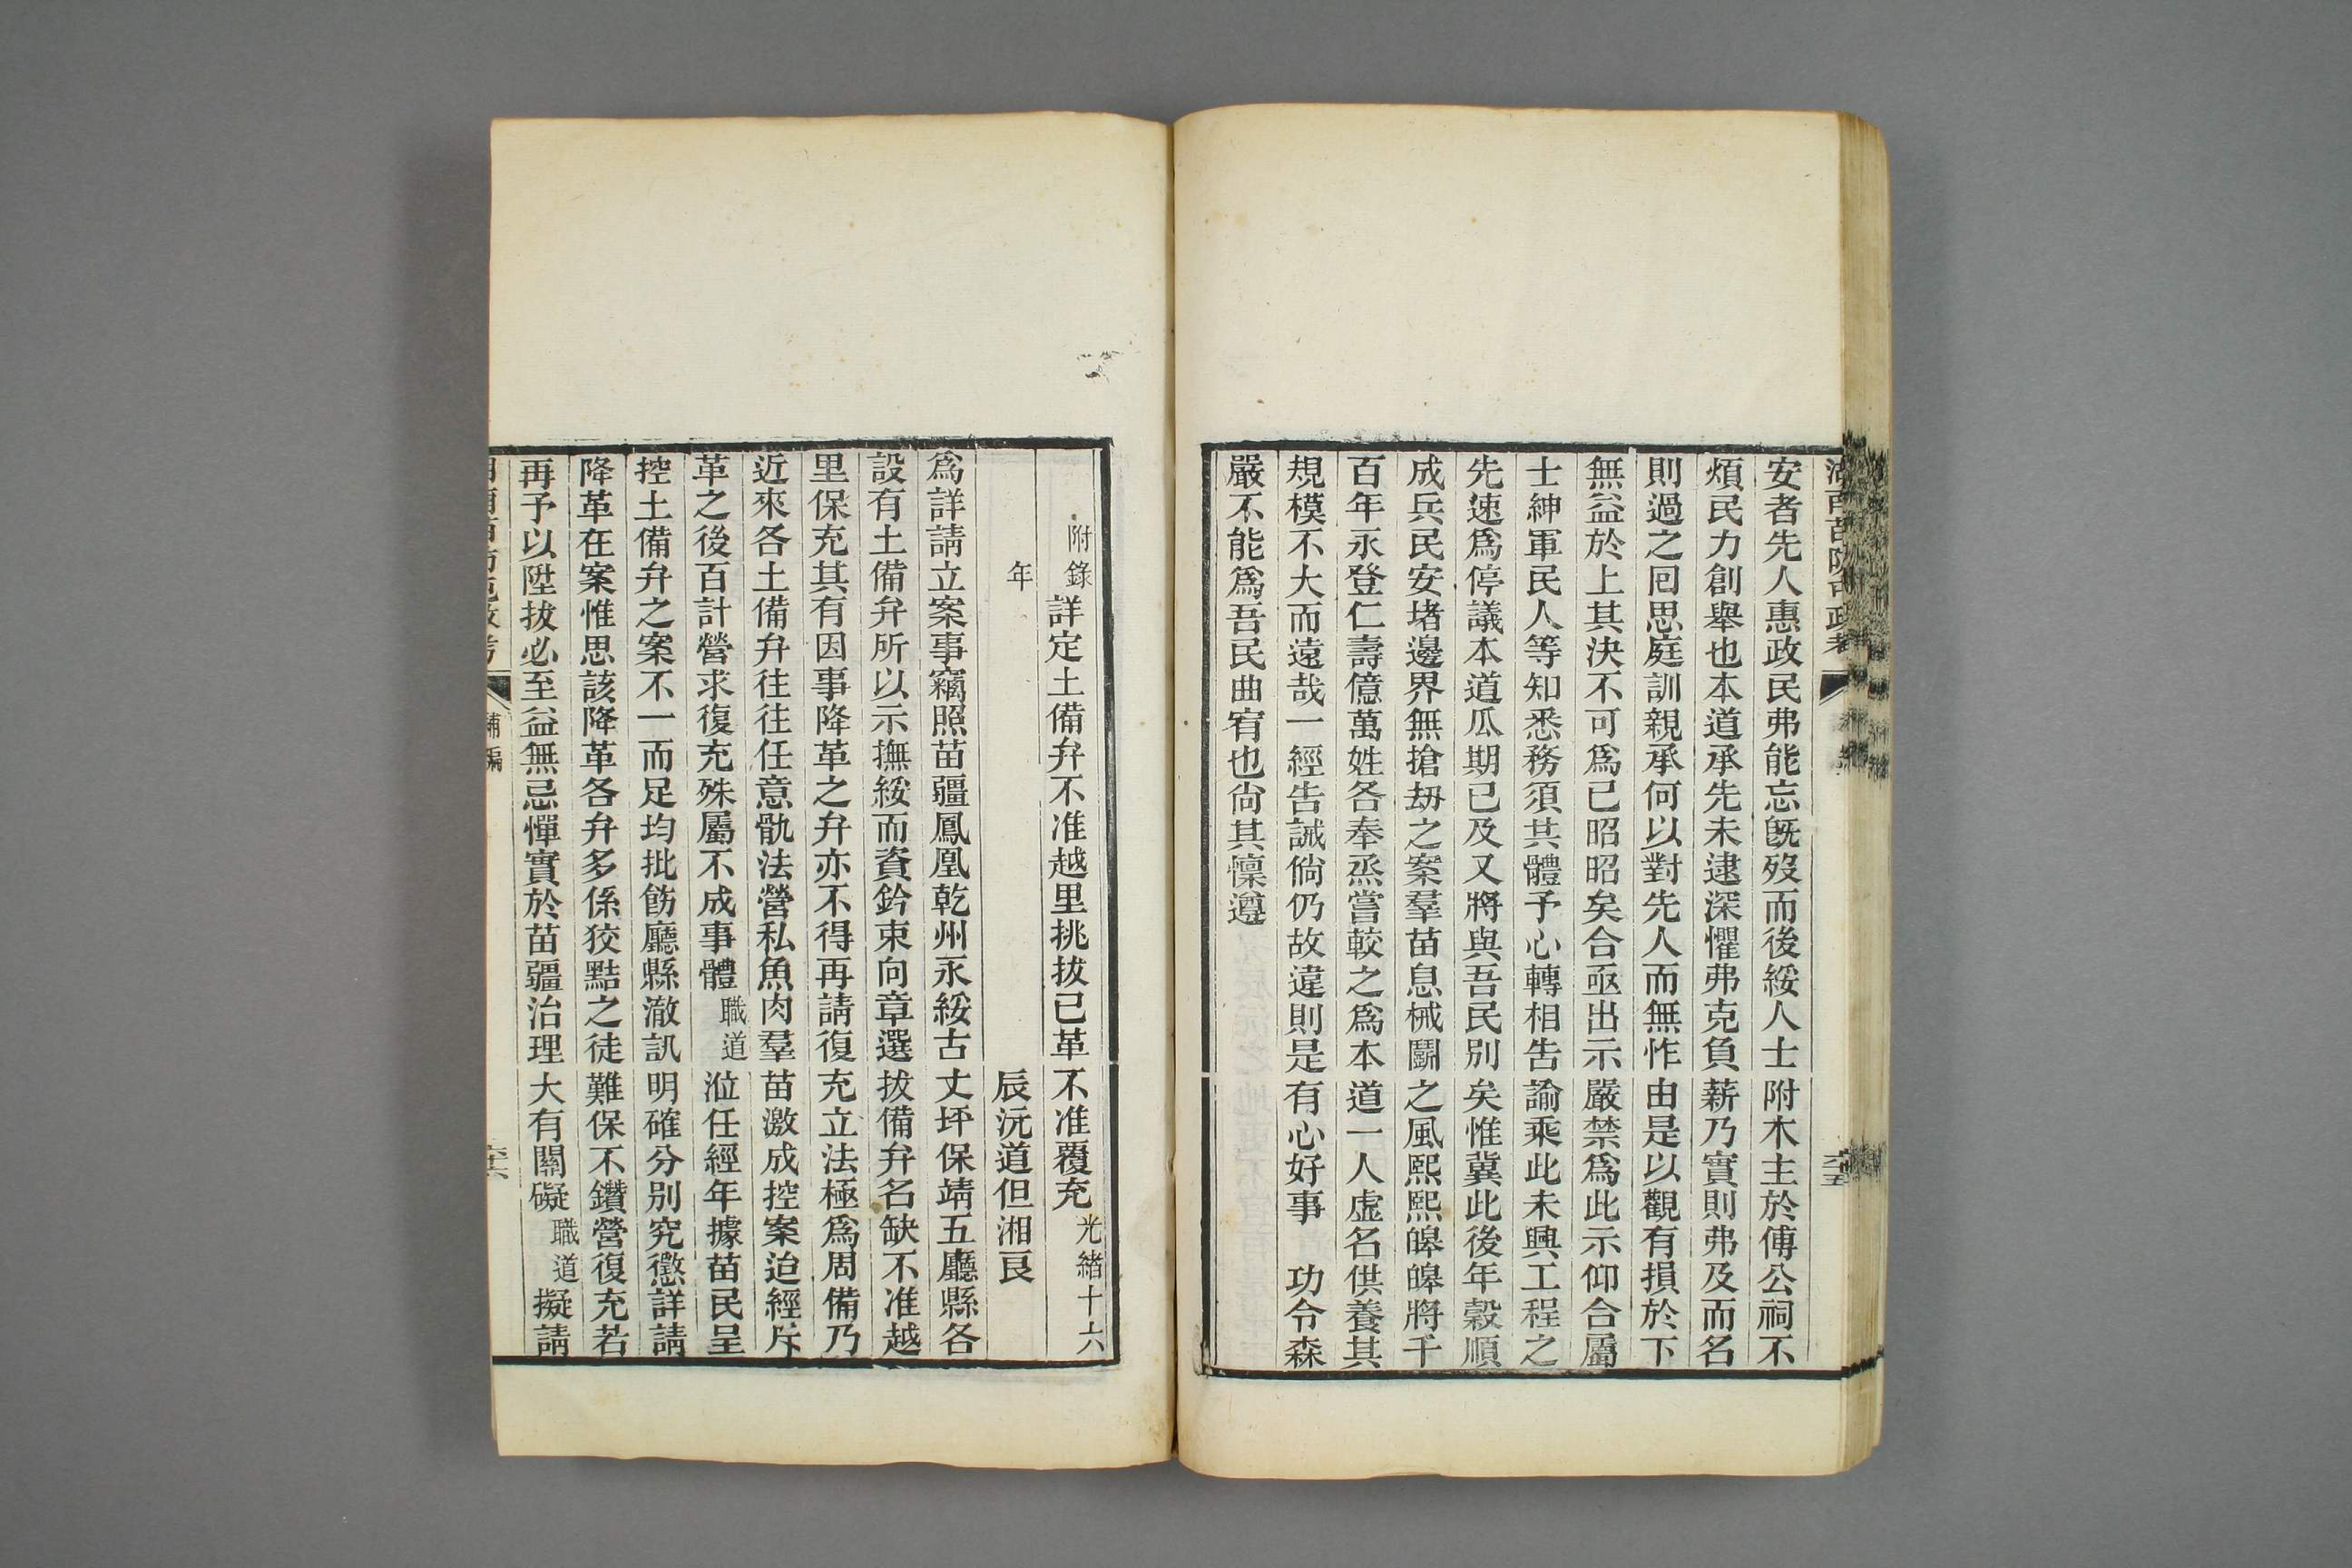 湖南苗防屯政考
六十五
安者先人惠政民弗能忘旣歿而後綏人士附木主於傅公祠不
煩民力創舉也本道承先未逮深懼弗克負薪乃實則弗及而名
則過之囘思庭訓親承何以對先人而無怍由是以觀有損於下
無益於上其決不可爲已昭昭矣合亟出示嚴禁爲此示仰合屬
士紳軍民人等知悉務須共體予心轉相告諭乘此未興工程之
先速爲停議本道瓜期已及又將與吾民別矣惟冀此後年穀順
成兵民安堵邊界無搶刼之案羣苗息械鬭之風熙熙皞皞將千
百年永登仁壽億萬姓各奉烝嘗較之爲本道一人虛名供養其
規模不大而遠哉一經告誡倘仍故違則是有心好事 功令森
嚴不能爲吾民曲宥也尙其懍遵
附錄詳定土備弁不准越里挑拔已革不准覆充光緒十六
年 辰沅道但湘良
爲詳請立案事竊照苗疆鳳凰乾州永綏古丈坪保靖五廳縣各
設有土備弁所以示撫綏而資鈐束向章選拔備弁名缺不准越
里保充其有因事降革之弁亦不得再請復充立法極爲周備乃
近來各土備弁往往任意骩法營私魚肉羣苗激成控案迨經斥
革之後百計營求復充殊屬不成事體職道涖任經年據苗民呈
控土備弁之案不一而足均批飭廳縣澈訊明確分別究懲詳請
降革在案惟思該降革各弁多係狡黠之徒難保不鑽營復充若
再予以陞拔必至益無忌憚實於苗疆治理大有關礙職道擬請
補編